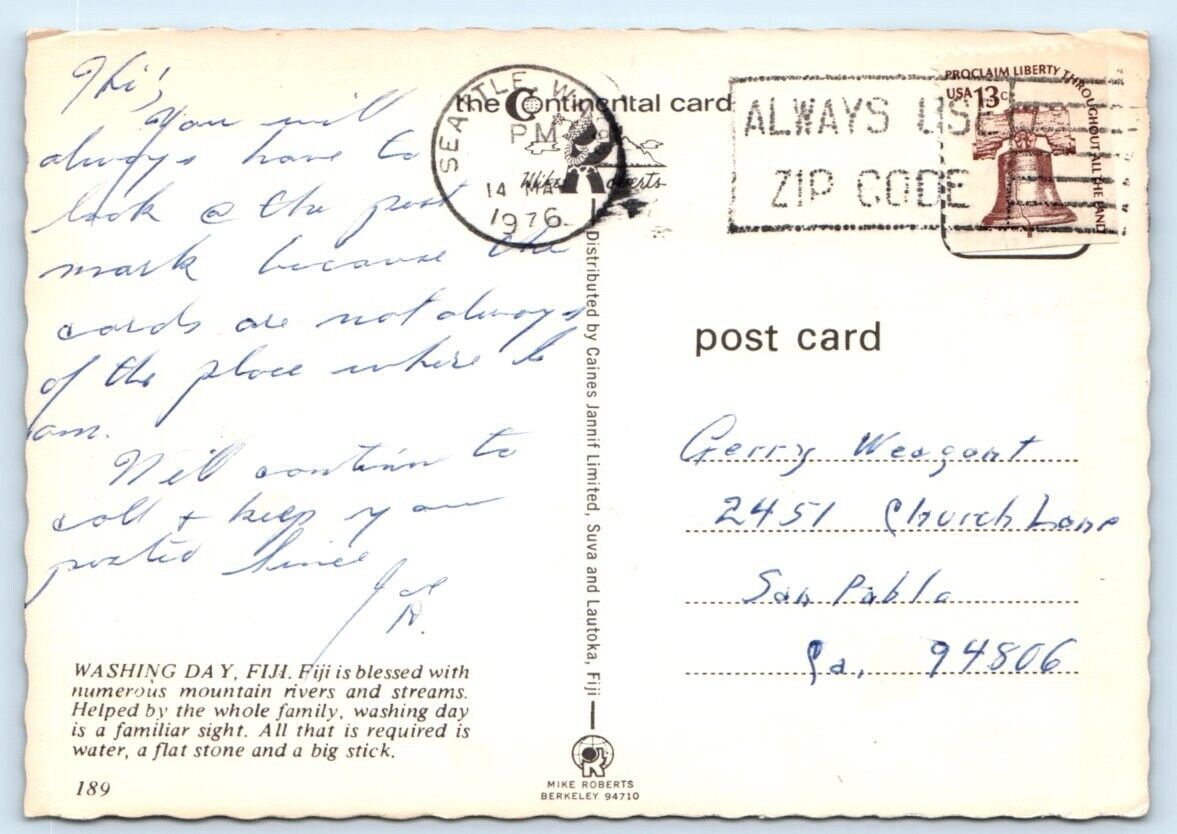 Hi;
You will
always have to
look @ the post
mark because the
cards are not always
of the place where I
am.
Will contin to
call + keep you
posted Since
Joe
H.
WASHING DAY, FIJI. Fiji is blessed with
numerous mountain rivers and streams.
Helped by the whole family, washing day
is a familiar sight. All that is required is
water, a flat stone and a big stick.
189
the Continental card
Mike Roberts
SEATTLE, W
PM
14 MA
1976
ALWAYS USE
ZIP CODE
PROCLAIM LIBERTY THROUGHOUT ALL THE LAND
USA 13c
Distributed by Caines Jannif Limited, Suva and Lautoka, Fiji
MIKE ROBERTS
BERKELEY 94710
post card
Gerry Weagant
2451 Church Lane
San Pablo
Ca, 94806